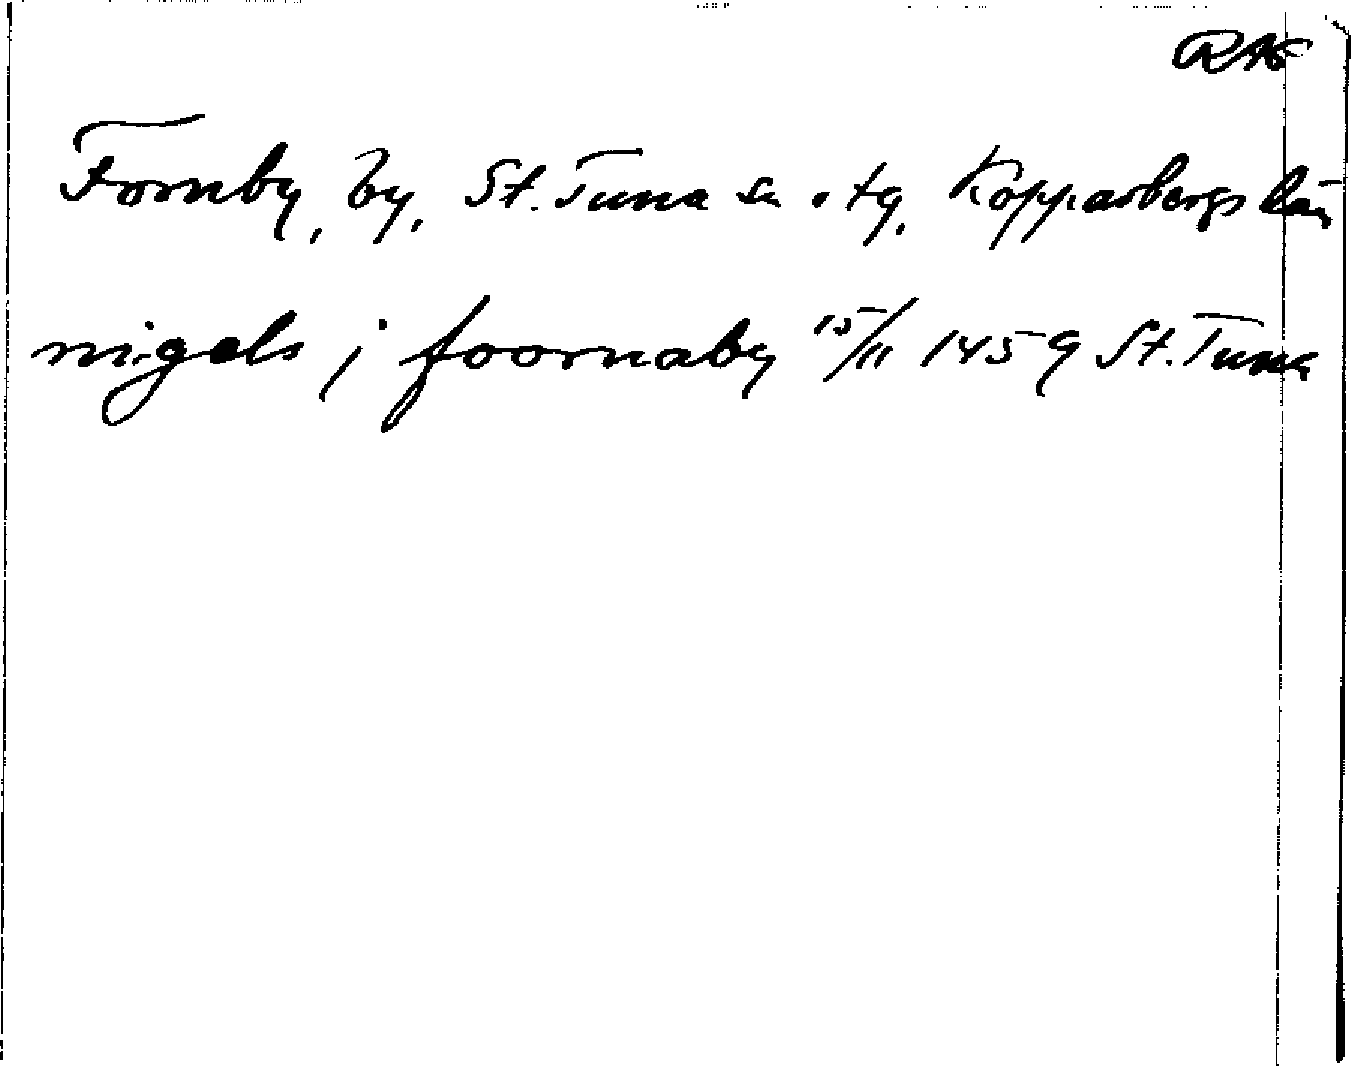 RAS
Fornby, by, St. Tuna sn o tg, Kopparbergs län
nigels j foornaby 15/11 1459 St. Tuna